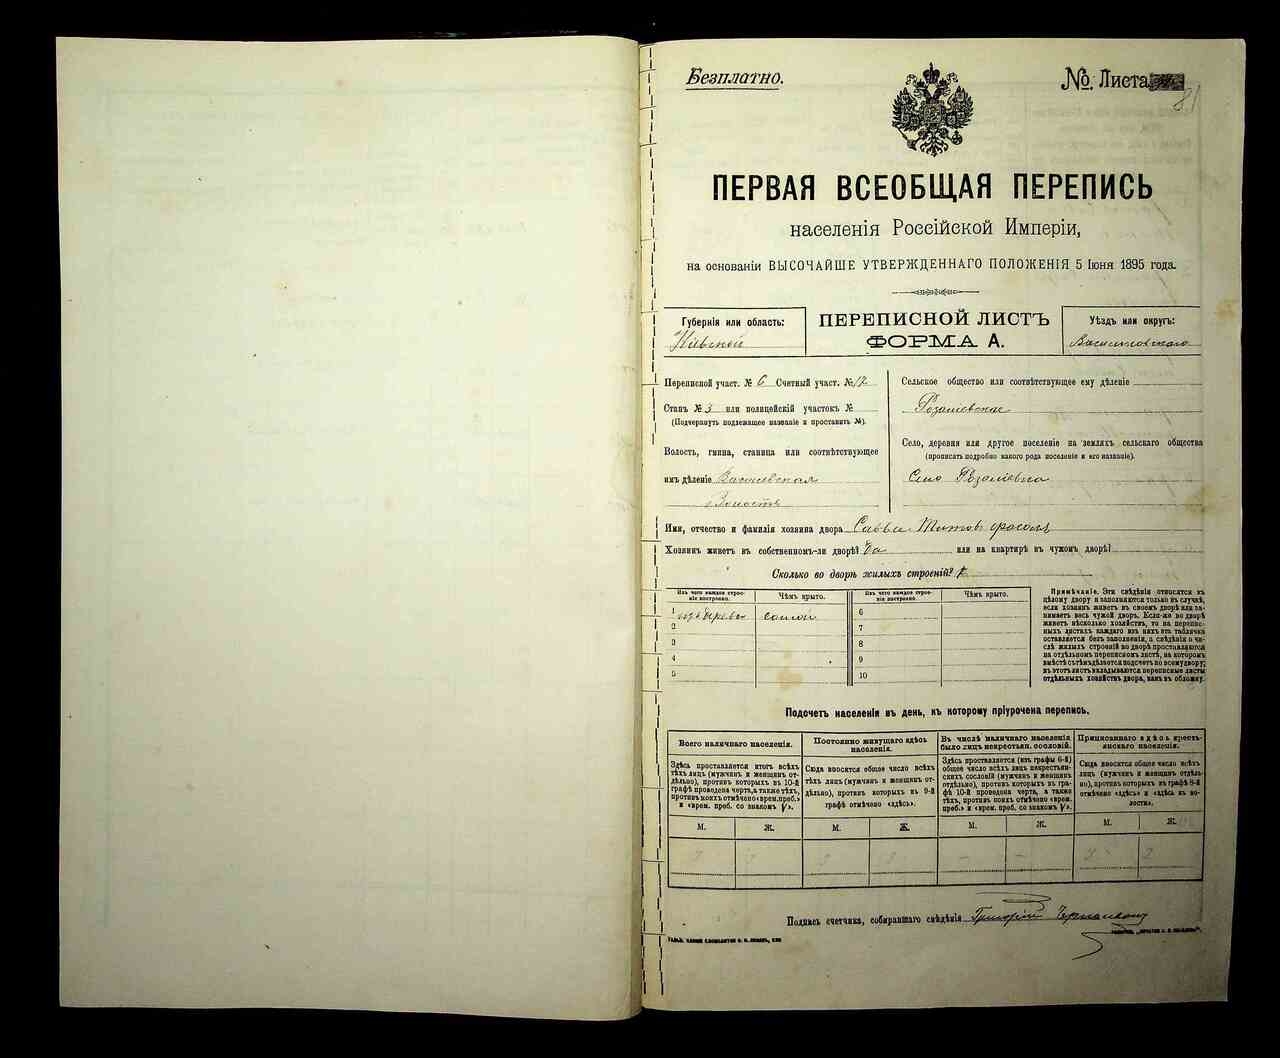 Безплатно.
№. Листа
81
ПЕРВАЯ ВСЕОБЩАЯ ПЕРЕПИСЬ
населенія Россійской Имперіи,
на основаніи ВЫСОЧАЙШЕ УТВЕРЖДЕННАГО ПОЛОЖЕНІЯ 5 Іюня 1895 года.
Губернія или область:
Кіевской
ПЕРЕПИСНОЙ ЛИСТЪ
ФОРМА А.
Уѣздъ или округъ:
Васильковскаго
Переписной участ. № 6 Счетный участ. № 12
Станъ № 3 или полицейскій участокъ №
(Подчеркнуть подлежащее названіе и проставить №).
Волость, гмина, станица или соотвѣтствующее
имъ дѣленіе
Волость
Сельское общество или соотвѣтствующее ему дѣленіе
Розаліевское
Село, деревня или другое поселеніе на земляхъ сельскаго общества
(прописать подробно какого рода поселеніе и его названіе).
Село Розаліевка
Имя, отчество и фамилія хозяина двора Савва Титовъ
Хозяинъ живетъ въ собственномъ-ли дворѣ? Да или на квартирѣ въ чужомъ дворѣ?
Сколько во дворѣ жилыхъ строеній? 1
Изъ чего каждое строеніе построено.
Чѣмъ крыто.
Изъ чего каждое строеніе построено.
Чѣмъ крыто.
1 изъ дерева соломой 6
2 7
3 8
4 9
5 10
Примѣчаніе. Эти свѣдѣнія относятся къ
цѣлому двору и заполняются только въ случаѣ,
если хозяинъ живетъ въ своемъ дворѣ или занимаетъ весь чужой дворъ. Если-же во дворѣ
живетъ нѣсколько хозяйствъ, то на переписныхъ листахъ каждаго изъ нихъ эта табличка
оставляется безъ заполненія, а свѣдѣнія о числѣ жилыхъ строеній во дворѣ проставляются
на отдѣльномъ переписномъ листѣ, на которомъ
вмѣстѣ съ тѣмъ дѣлается подсчетъ по всему двору;
въ этотъ листъ вкладываются переписные листы
отдѣльныхъ хозяйствъ двора, какъ въ обложку.
Подсчетъ населенія въ день, къ которому пріурочена перепись.
Всего наличнаго населенія.
Постоянно живущаго здѣсь населенія.
Въ числѣ наличнаго населенія было лицъ некрестьян. сословій.
Приписаннаго здѣсь крестьянскаго населенія.
Здѣсь проставляется итогъ всѣхъ
тѣхъ лицъ (мужчинъ и женщинъ отдѣльно), противъ которыхъ въ 10-й
графѣ проведена черта, а также тѣхъ,
противъ коихъ отмѣчено «врем. преб.»
и «врем. преб. со знакомъ V».
Сюда вносится общее число всѣхъ
тѣхъ лицъ (мужчинъ и женщинъ отдѣльно), противъ которыхъ въ 9-й
графѣ отмѣчено «здѣсь».
Здѣсь проставляется (изъ графы 6-й)
общее число всѣхъ лицъ некрестьянскихъ сословій (мужчинъ и женщинъ
отдѣльно), противъ которыхъ въ графѣ 10-й проведена черта, а также
тѣхъ, противъ коихъ отмѣчено «врем.
преб.» и «врем. преб. со знакомъ V».
Сюда вносится общее число всѣхъ
лицъ (мужчинъ и женщинъ отдѣльно), противъ которыхъ въ графѣ 8-й
отмѣчено «здѣсь» и «здѣсь въ волости».
М. Ж. М. Ж. М. Ж. М. Ж.
Подпись счетчика, собиравшаго свѣдѣнія Григорій